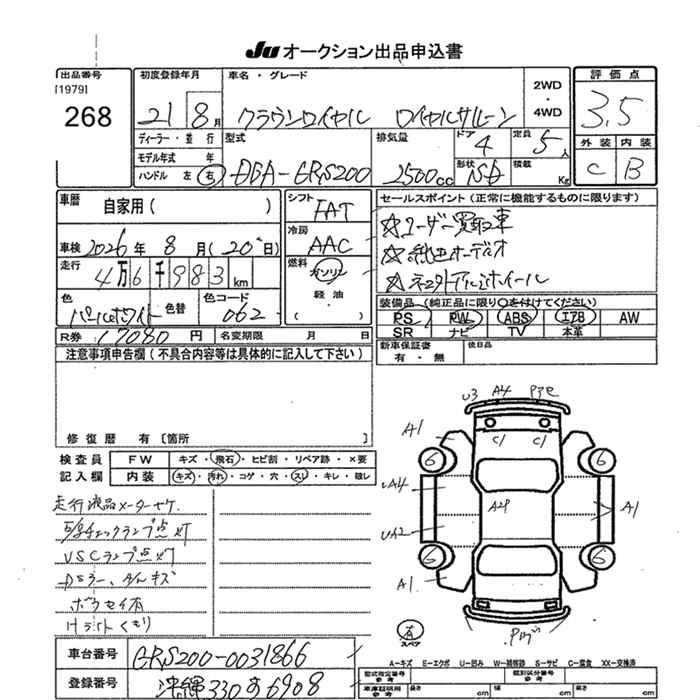 Ju オークション出品申込書
出品番号
[1979]
268
初度登録年月
21 8月
車名・グレード
クラウンロイヤル ロイヤルサルーン
2WD
・
4WD
評価点
3.5
外装 内装
C B
ディーラー・並行
モデル年式 年
ハンドル 左 右
型式
DBA-GRS200
排気量
2500cc
ドア
4
形状
SD
定員
5人
積載
Kg
車歴
自家用( )
車検 2026年 8月(20日)
走行
4万6千983km
色
パールホワイト
色替
色コード
062
シフト
FAT
冷房
AAC
燃料
ガソリン
軽油
( )
セールスポイント(正常に機能するものに限ります)
☆ユーザー買取車
☆純正オーディオ
装備品(純正品に限り○を付けてください)
PS PW ABS エアB AW
SR ナビ TV 本革
R券 17080円 名変期限 月 日
新車保証書
有・無
後日品
注意事項申告欄(不具合内容等は具体的に記入して下さい)
修復歴 有〔箇所 〕
検査員
記入欄
FW キズ・飛石・ヒビ割・リペア跡・×要
内装 キズ・汚れ・コゲ・穴・スレ・キレ・破レ
走行液晶メーターヤケ
チェックランプ点灯
VSCランプ点灯
Dミラー、ダメキズ
ボウセイ有
Hライトくもり
U3 A4
A1 C1 C1
6 6
UA4 A2P A1
UA2
6 6
A1
有
スペア
車台番号
GRS200-0031866
登録番号
沖縄330す6908
A-キズ E-エクボ U-凹み W-補修跡 S-サビ C-腐食 XX-交換済
型式指定番号
参考
類別区分番号
参考
車庫証明用
参考
長さ cm 幅 cm 高さ cm